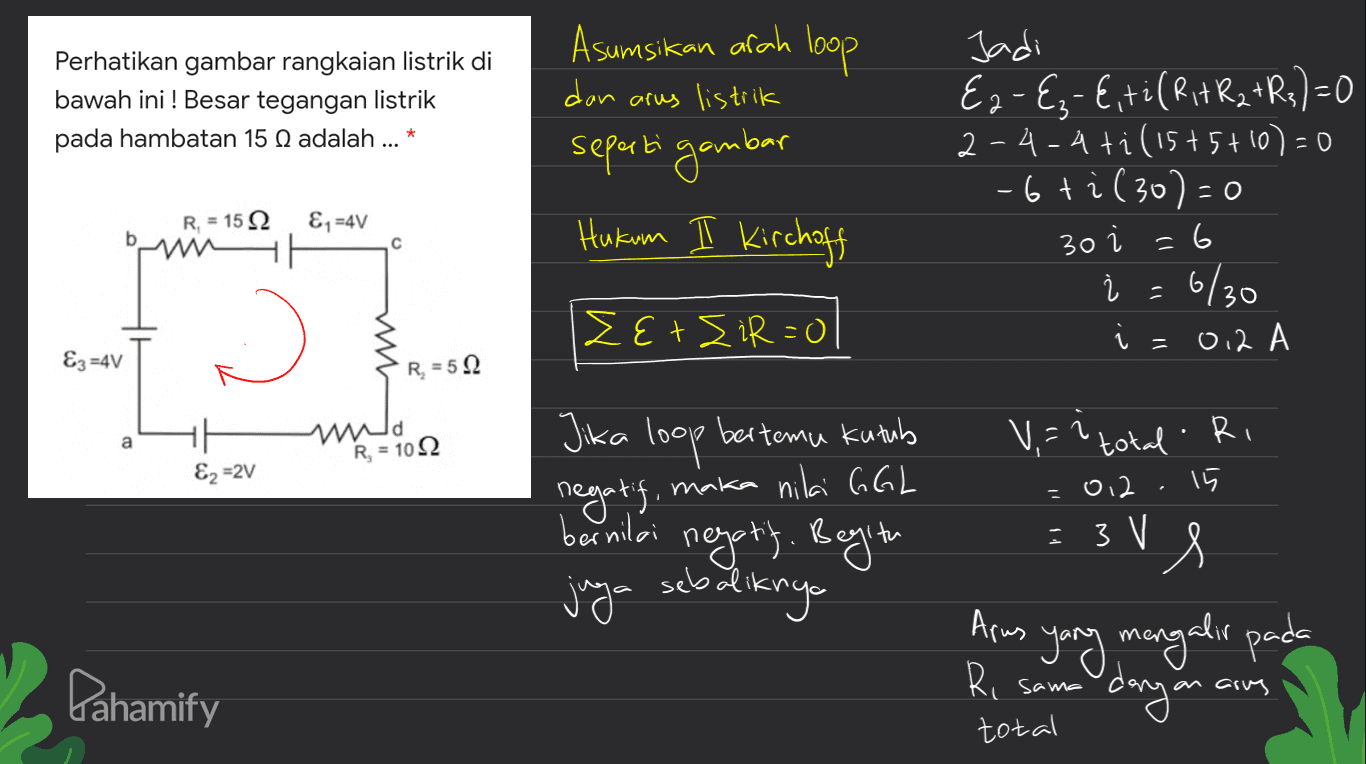 Perhatikan gambar rangkaian listrik di
bawah ini ! Besar tegangan listrik
pada hambatan 15 Ω adalah ... *
R₁ = 15 Ω
Ɛ₁ =4V
b
c
Ɛ₃ =4V
R₂ = 5 Ω
a
d
R₃ = 10 Ω
Ɛ₂ =2V
Pahamify
Asumsikan arah loop
dan arus listrik
seperti gambar
Hukum II Kirchoff
Σ Ɛ + Σ iR = 0
Jika loop bertemu kutub
negatif, maka nilai GGL
bernilai negatif. Begitu
juga sebaliknya
Jadi
Ɛ₂ - Ɛ₃ - Ɛ₁ + i(R₁ + R₂ + R₃) = 0
2 - 4 - 4 + i (15 + 5 + 10) = 0
-6 + i (30) = 0
30 i = 6
i = 6/30
i = 0,2 A
V₁ = i total . R₁
= 0,2 . 15
= 3 V
Arus yang mengalir pada
R₁ sama dengan arus
total